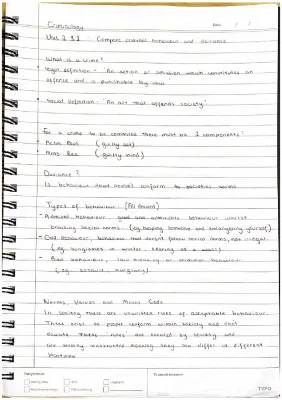 Criminology
Date: / /
Unit 2 1.1 Compare criminal behaviour and deviance
What is a crime?
• Legal definition - 'An action or omission which constitutes an
offence and is punishable by law'
• Social definition - 'An act that offends society'
For a crime to be committed there must be 2 components:
• Actus Reus (guilty act)
• Mens Rea (guilty mind)
Deviance?
Is behaviour that conform to societies norms
Types of behaviour
- Admirable behaviour, good and admirable behaviour whilst
breaking social norms (eg helping someone and endangering yourself)
- Odd behaviour, behaviour that doesn't follow social norms, not illegal
(eg sunglasses in winter, staring at a wall)
- Bad behaviour, law breaking or criminal behaviour
(eg assault, burglary)
Norms, Values and Moral Code
In society there are unwritten rules of acceptable behaviour.
These exist so people conform within society and don't
deviate. These rules are created by society and
are socially constructed meaning they can differ in different